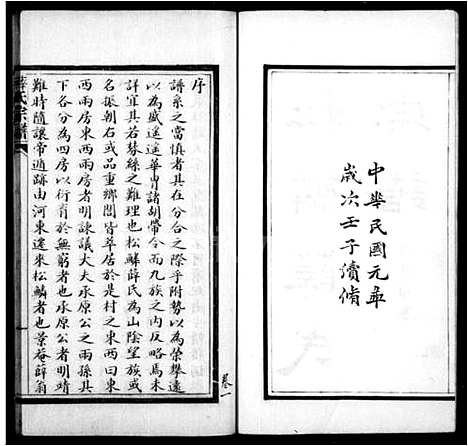 中華民國元年
歲次壬子續脩
序
譜系之當慎者其在分合之際乎附勢以為榮攀遠
以為盛遙遙華胄諸胡帶令而九族之內反略焉未
詳宜其若棼絲之難理也松鱗薛氏為山陰望族或
名振朝右或品重鄉閭皆萃居於是村之東西曰東
西兩房東西兩房者明諫議大夫承原公之兩孫其
下各分為四房以衍育於無窮者也承原公者明靖
難時隨讓帝遁跡由河東遷來松鱗者也景庵薛翁
卷一
薛氏宗譜